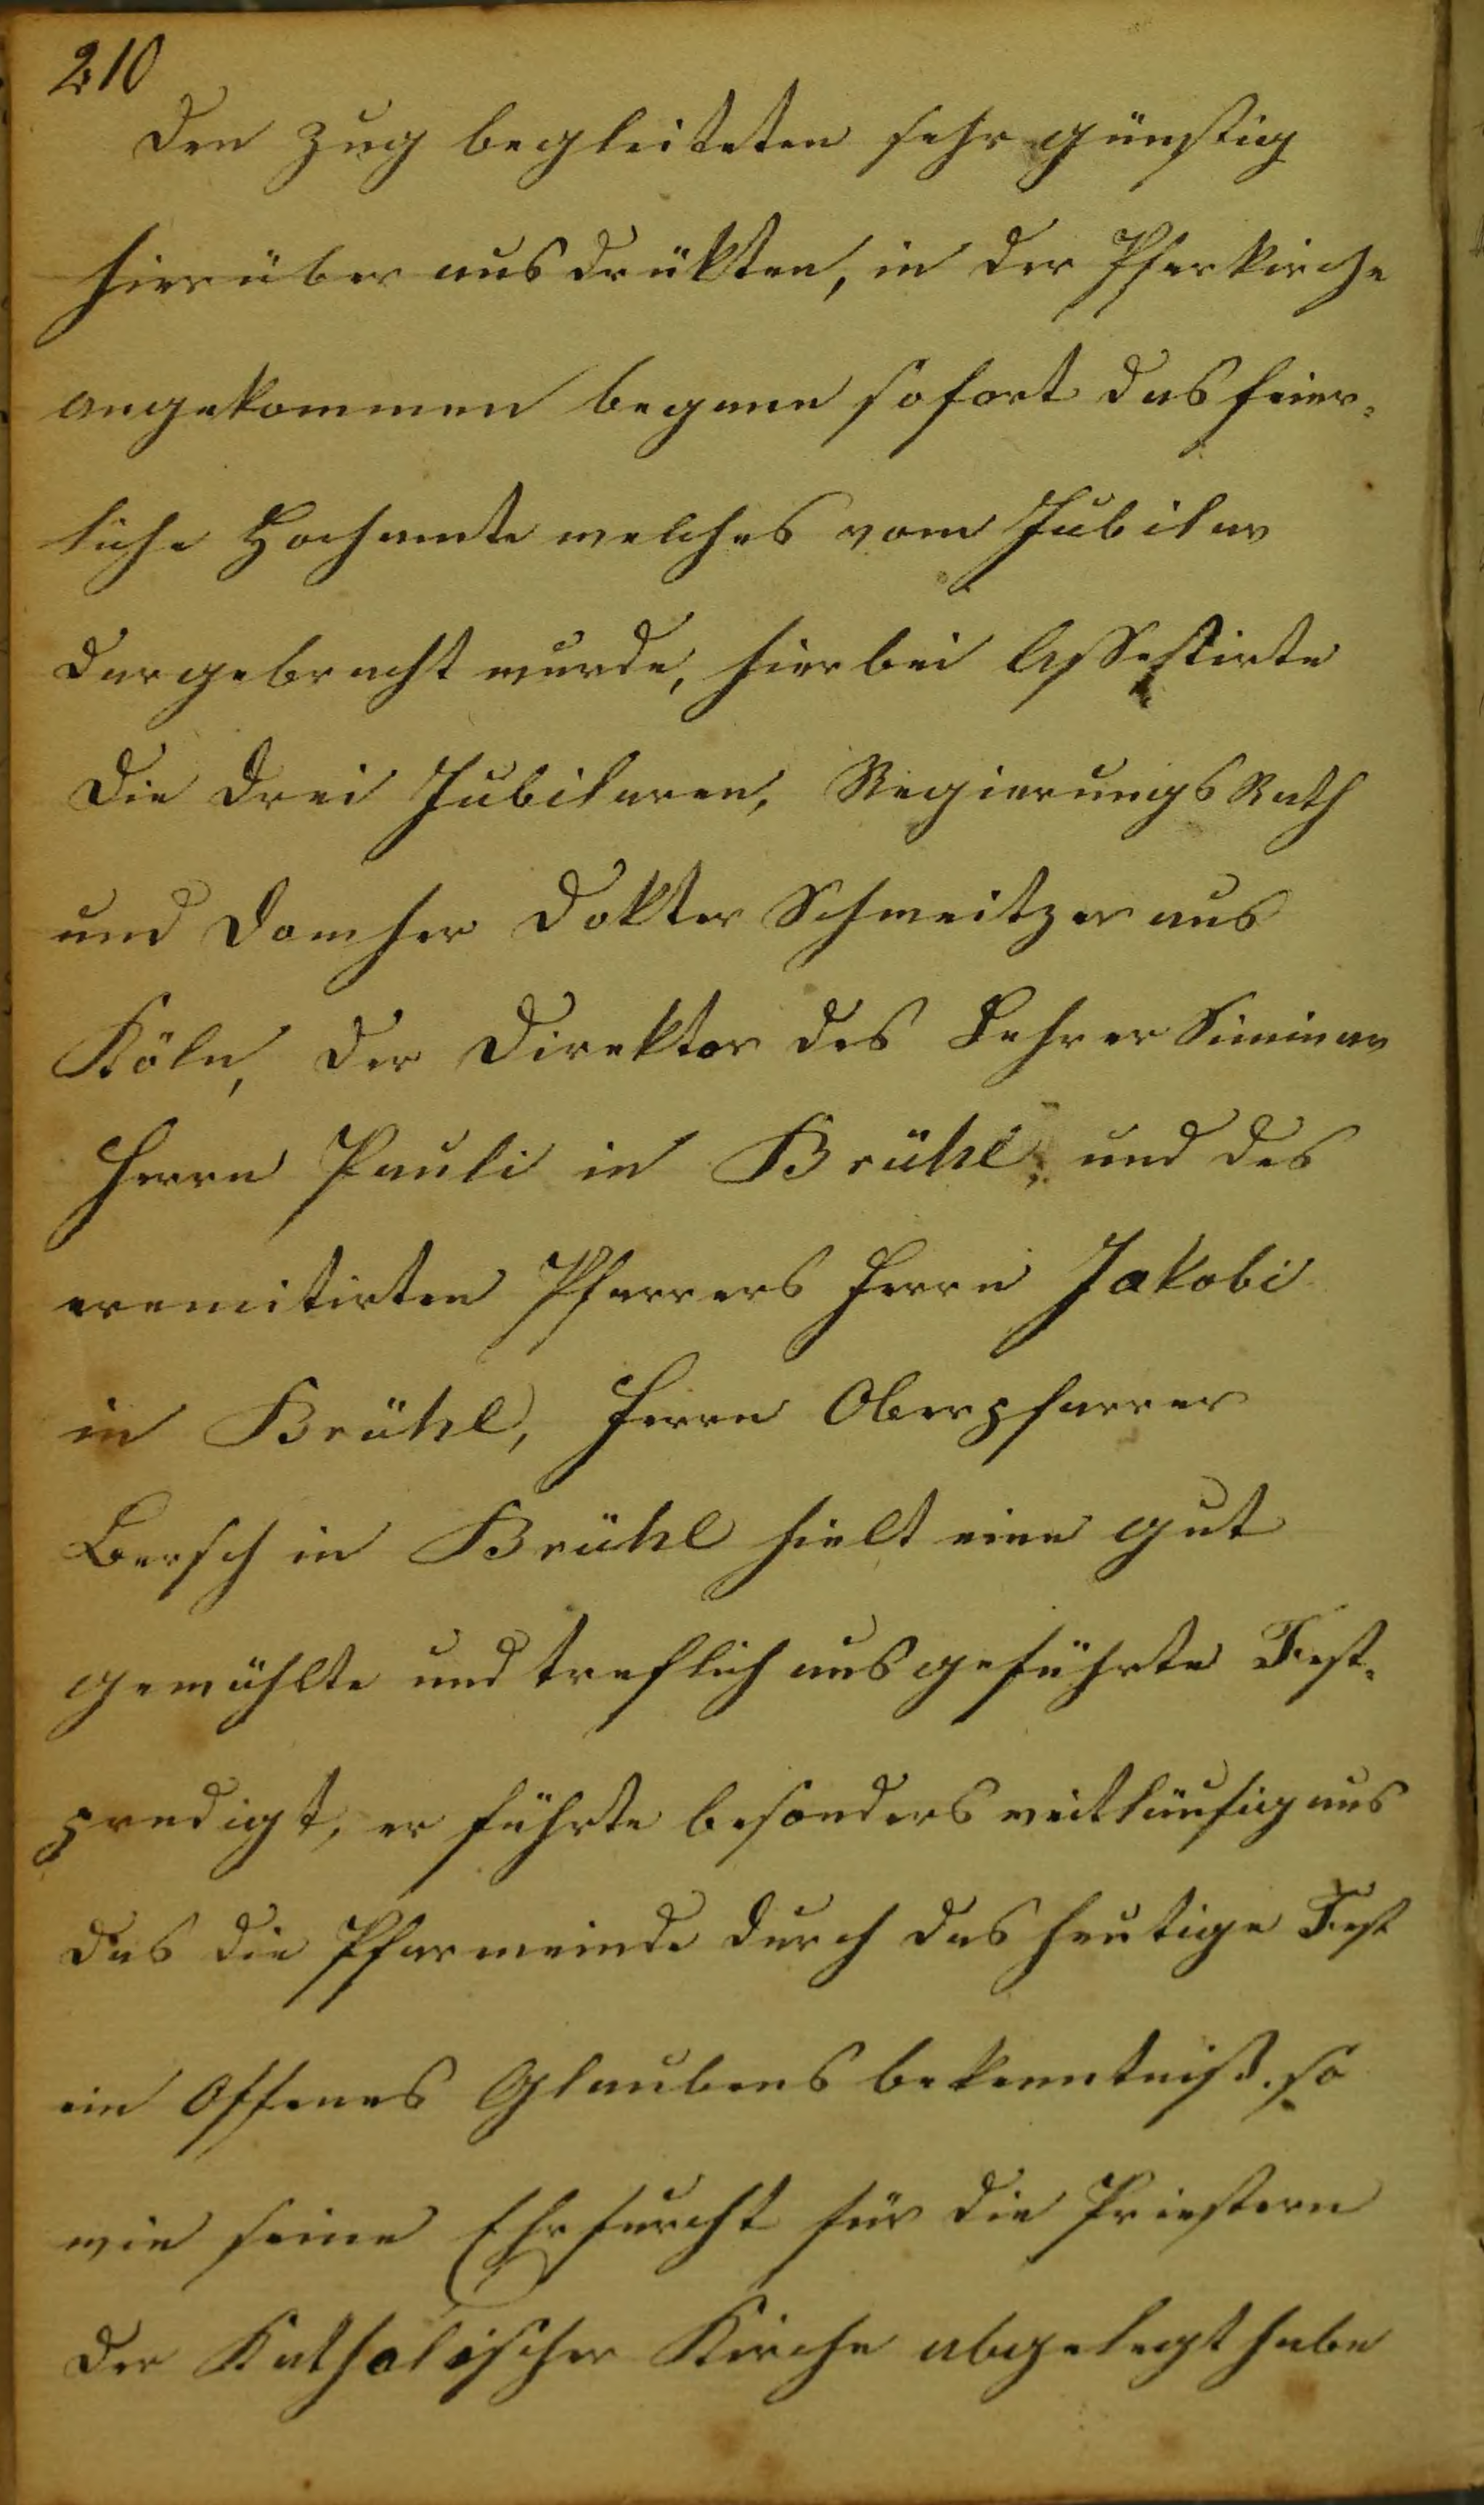 210
den Zug begleiteten sehr günstig
hierüber ausdrükten, in der Pfarkirche
angekommen begann sofort das feier-
liche Hochamte welches vom Jubilar
dargebracht wurde, hierbei Assestirte
die drei Jubilaren, Regierungs Rath
und Domher Dokter Schweitzer aus
Köln, der Direktor des Lehrer Siminar
Herrn Pauli in Brühl, und des
eremitirten Pfarrers Herrn Jakobi
in Brühl, Herrn Oberpfarrer
Bersch in Brühl hielt eine gut
gewählte und treflich ausgeführte Fest-
predigt, er führte besonders weitläufig aus
das die Pfarmeinde durch das heutige Fest
ein Offenes Glaubens bekenntniß so
wie seine Ehrfurcht für die Priestern
der Katholischer Kirche abgelegt habe